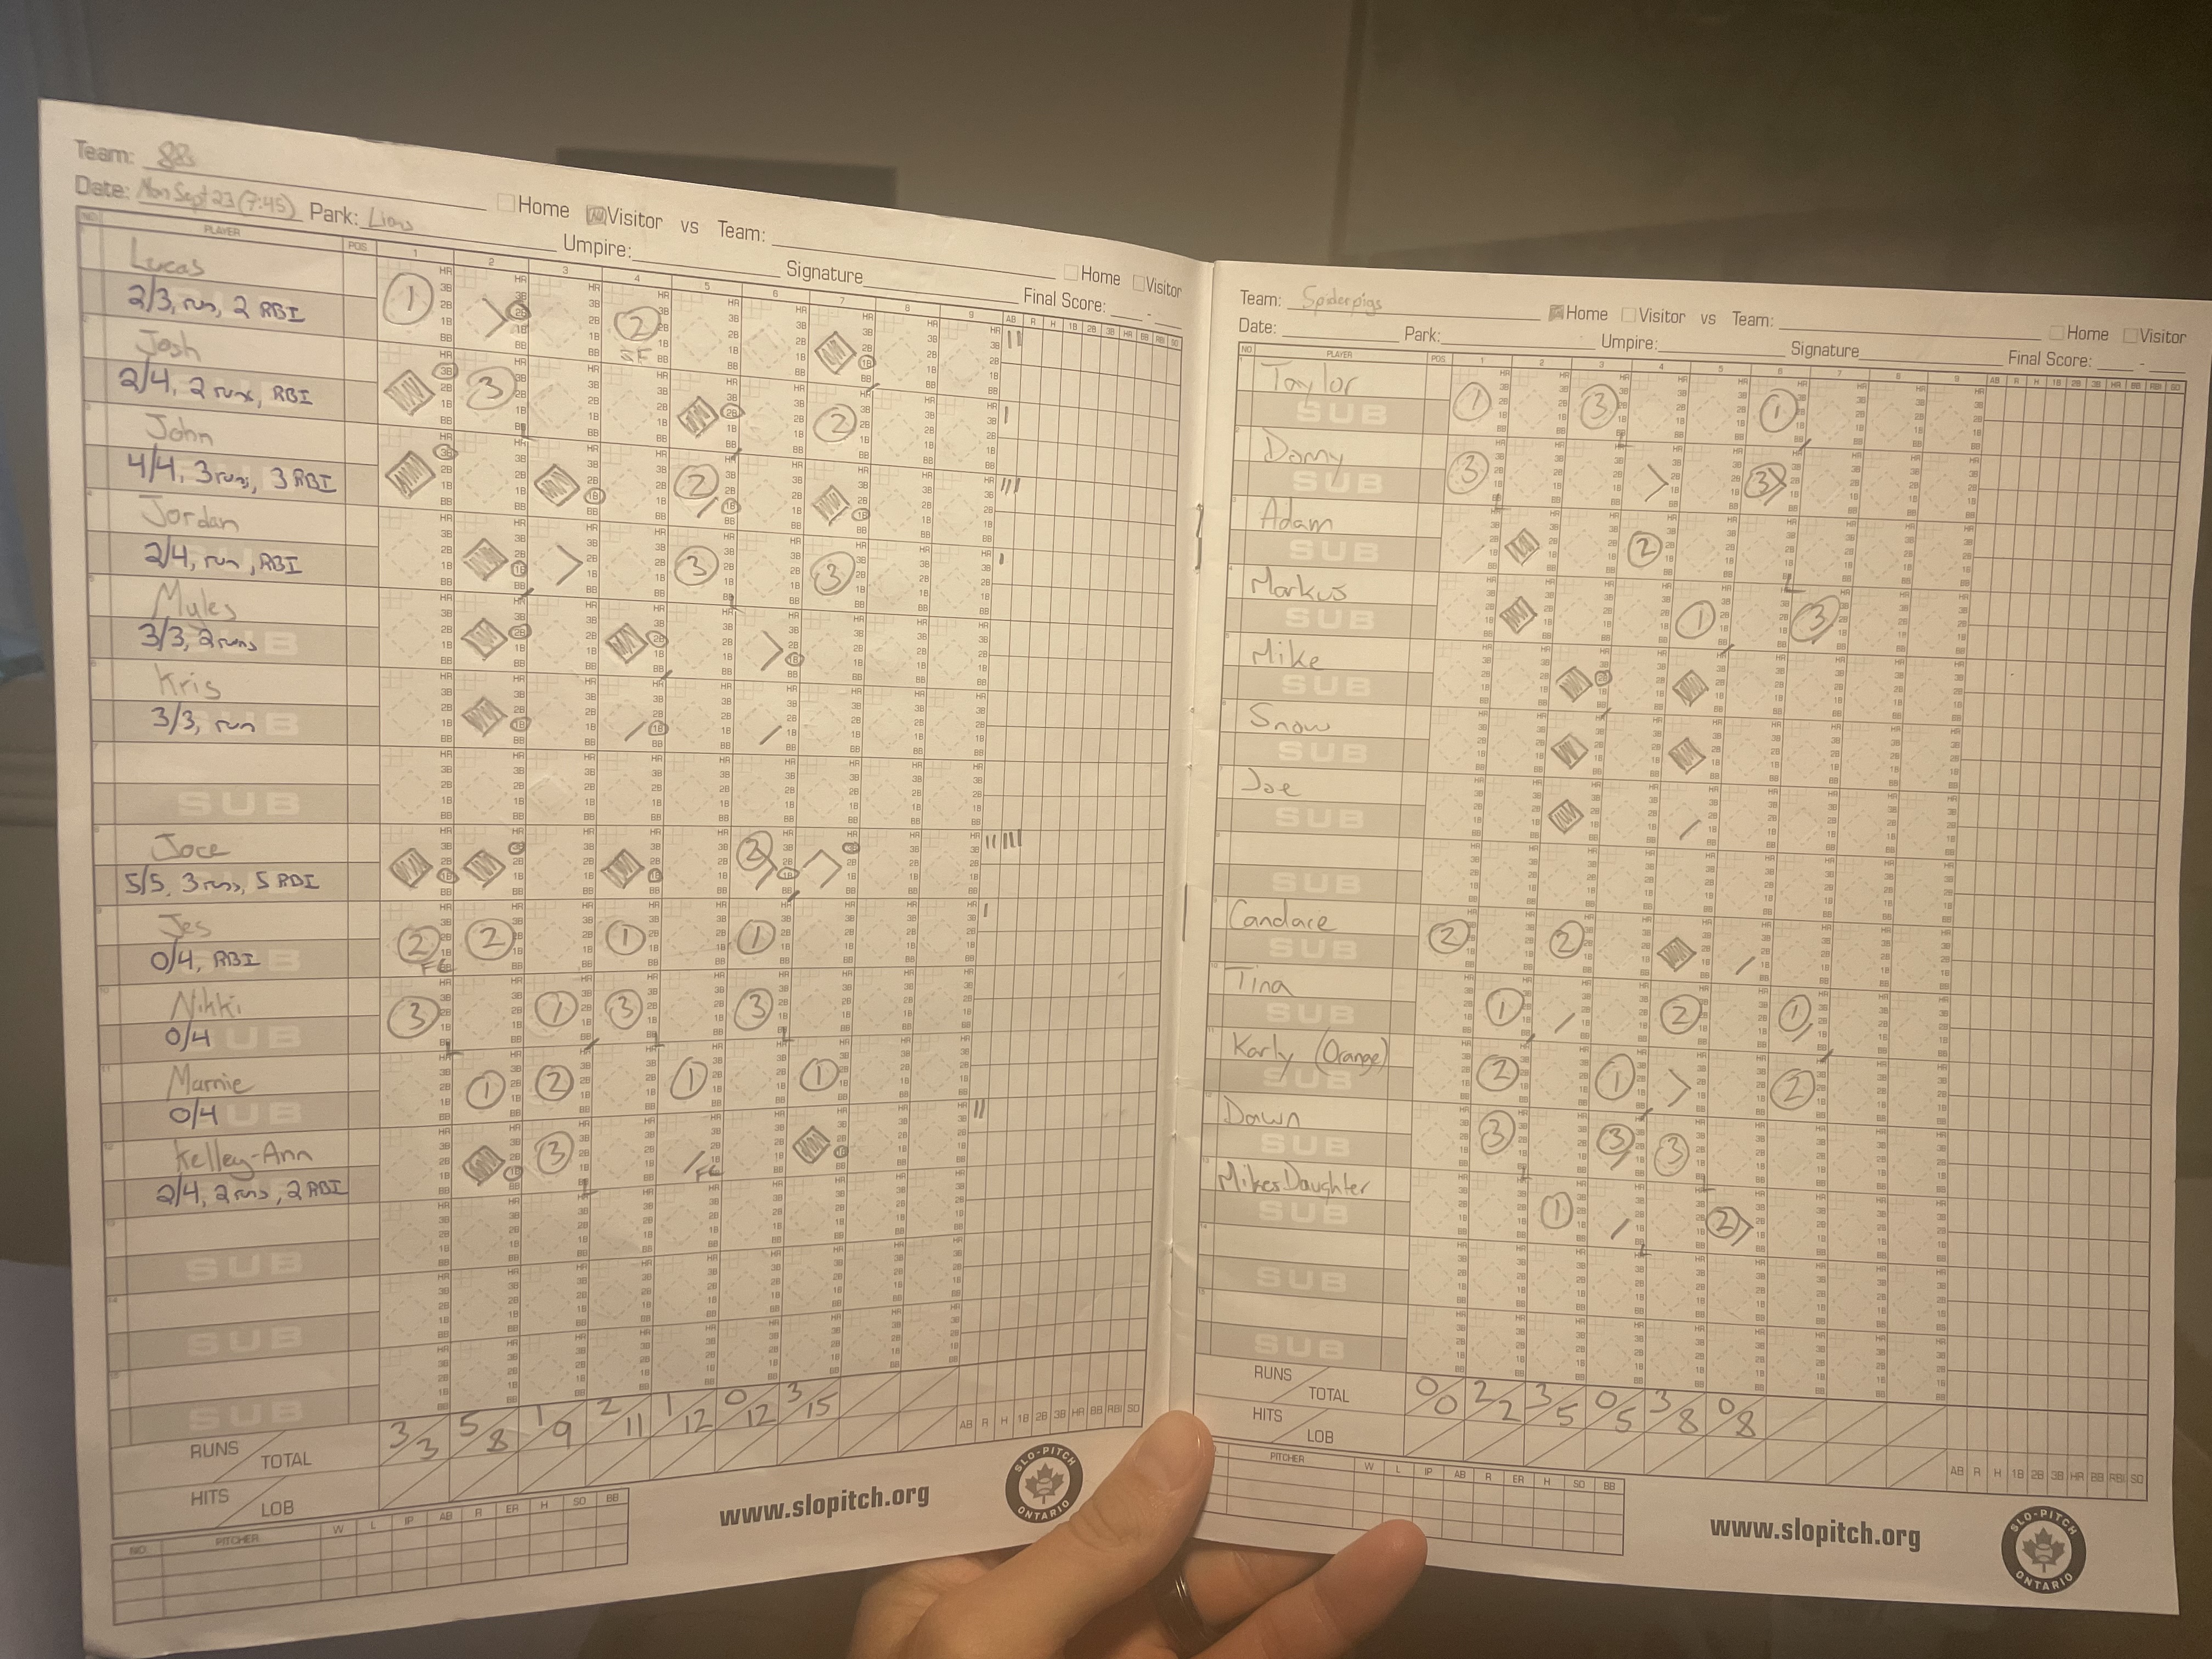 Team: 88s
Date: Mon Sept 23 (7:45) Park: Lions Home Visitor vs Team:
Umpire: Signature Home Visitor
Final Score: -
NO PLAYER POS. 1 2 3 4 5 6 7 8 9 AB R H 1B 2B 3B HR BB RBI SO
Lucas
2/3, run, 2 RBI
1 2
SF
Josh
2/4, 2 runs, RBI
3 2
John
4/4, 3 runs, 3 RBI
2
Jordan
2/4, run, RBI
3 3
Myles
3/3, 2 runs
Kris
3/3, run
SUB
Joce
5/5, 3 runs, 5 RBI
2
Jes
0/4, RBI
2 2 1 1
FC
Nikki
0/4
3 1 3 3
Marnie
0/4
1 2 1 1
Kelley-Ann
2/4, 2 runs, 2 RBI
3 FC
SUB
SUB
SUB
RUNS TOTAL 3/3 5/8 1/9 2/11 1/12 0/12 3/15
HITS LOB
AB R H 1B 2B 3B HR BB RBI SO
NO. PITCHER W L IP AB R ER H SO BB
www.slopitch.org
SLO-PITCH ONTARIO
Team: Spiderpigs Home Visitor vs Team: Home Visitor
Date: Park: Umpire: Signature Final Score: -
NO PLAYER POS. 1 2 3 4 5 6 7 8 9 AB R H 1B 2B 3B HR BB RBI SO
Taylor
SUB
1 3 1
Damy
SUB
3 3
Adam
SUB
2
Markus
SUB
1 3
Mike
SUB
Snow
SUB
Joe
SUB
SUB
Candace
SUB
2 2
Tina
SUB
1 2 1
Karly (Orange)
SUB
2 1 2
Dawn
SUB
3 3 3
Mikes Daughter
SUB
1 2
SUB
SUB
RUNS TOTAL 0/0 2/2 3/5 0/5 3/8 0/8
HITS LOB
AB R H 1B 2B 3B HR BB RBI SO
PITCHER W L IP AB R ER H SO BB
www.slopitch.org
SLO-PITCH ONTARIO